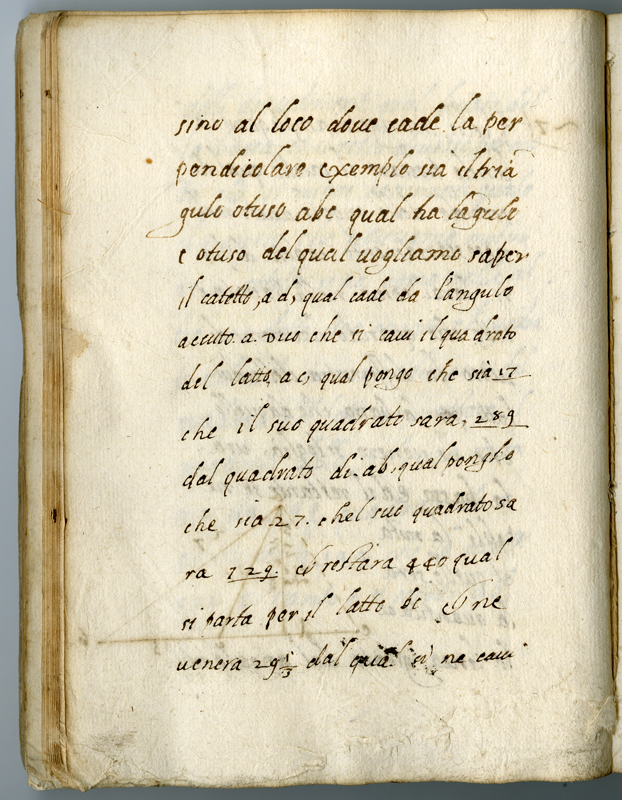 sino al loco dove cade la per
pendicolare exemplo sia il triā
gulo otuso abc qual ha lāgulo
c otuso del qual uogliamo saper
il catetto, a d, qual cade da l'angulo
accuto. a. Dico che si cavi il quadrato
del latto, a c, qual pongo che sia 17
che il suo quadrato sara, 289
dal quadrato di. ab, qual pongho
che sia 27. chel suo quadrato sa
ra 729. et restara 440 qual
si parta per il latto bc et ne
venera 29 1/3 dal qual si ne cavi